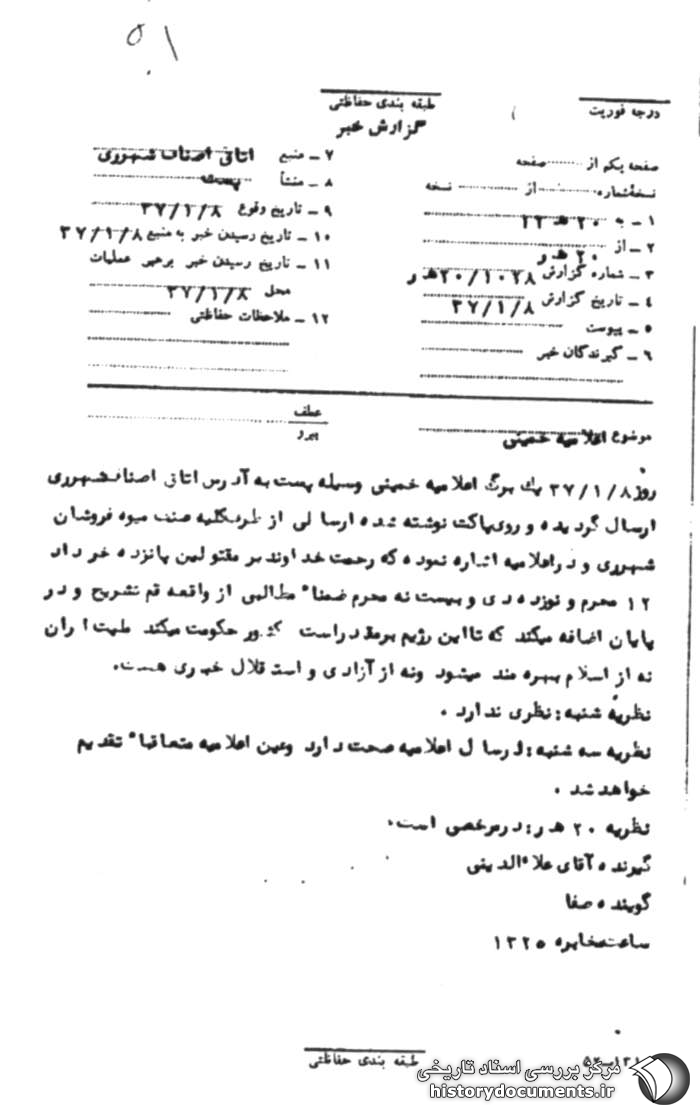 ۵۱
درجه فوریت
طبقه بندی حفاظتی
گزارش خبر
صفحه یکم از ........ صفحه
نسخه‌شماره ........ از ........ نسخه
۱ ـ به ۲۰ ھ ۲۲
۲ ـ از ۲۰ ھ ر
۳ ـ شماره گزارش ۲۰/۱۰۲۸ ھ ر
۴ ـ تاریخ گزارش ۳۷/۱/۸
۵ ـ پیوست
۶ ـ گیرندگان خبر
۷ ـ منبع اتاق اصناف شهرری
۸ ـ منشأ پست
۹ ـ تاریخ وقوع ۳۷/۱/۸
۱۰ ـ تاریخ رسیدن خبر به منبع ۳۷/۱/۸
۱۱ ـ تاریخ رسیدن خبر برهبر عملیات
محل ۳۷/۱/۸
۱۲ ـ ملاحظات حفاظتی
موضوع اعلامیه خمینی
عطف
پیرو
روز ۳۷/۱/۸ یک برگ اعلامیه خمینی وسیله پست به آدرس اتاق اصناف شهرری
ارسال گردیده و روی پاکت نوشته شده ارسالی از طرف کلیه صنف میوه فروشان
شهرری و در اعلامیه اشاره نموده که رحمت خداوند بر مقتولین پانزده خرداد
۱۲ محرم و نوزده دی و بیست نه محرم ضمناً مطالبی از واقعه قم تشریح و در
پایان اضافه میکند که تا این رژیم بر مقدرات کشور حکومت میکند ملیت ایران
نه از اسلام بهره مند میشود ونه از آزادی و استقلال خبری هست.
نظریه شنبه : نظری ندارد .
نظریه سه شنبه : ارسال اعلامیه صحت دارد وعین اعلامیه متعاقباً تقدیم
خواهد شد .
نظریه ۲۰ ھ ر : درمرخصی است.
گیرنده آقای علاءالدینی
گوینده صفا
ساعت مخابره ۱۳۲۵
طبقه بندی حفاظتی
مرکز بررسی اسناد تاریخی
historydocuments.ir